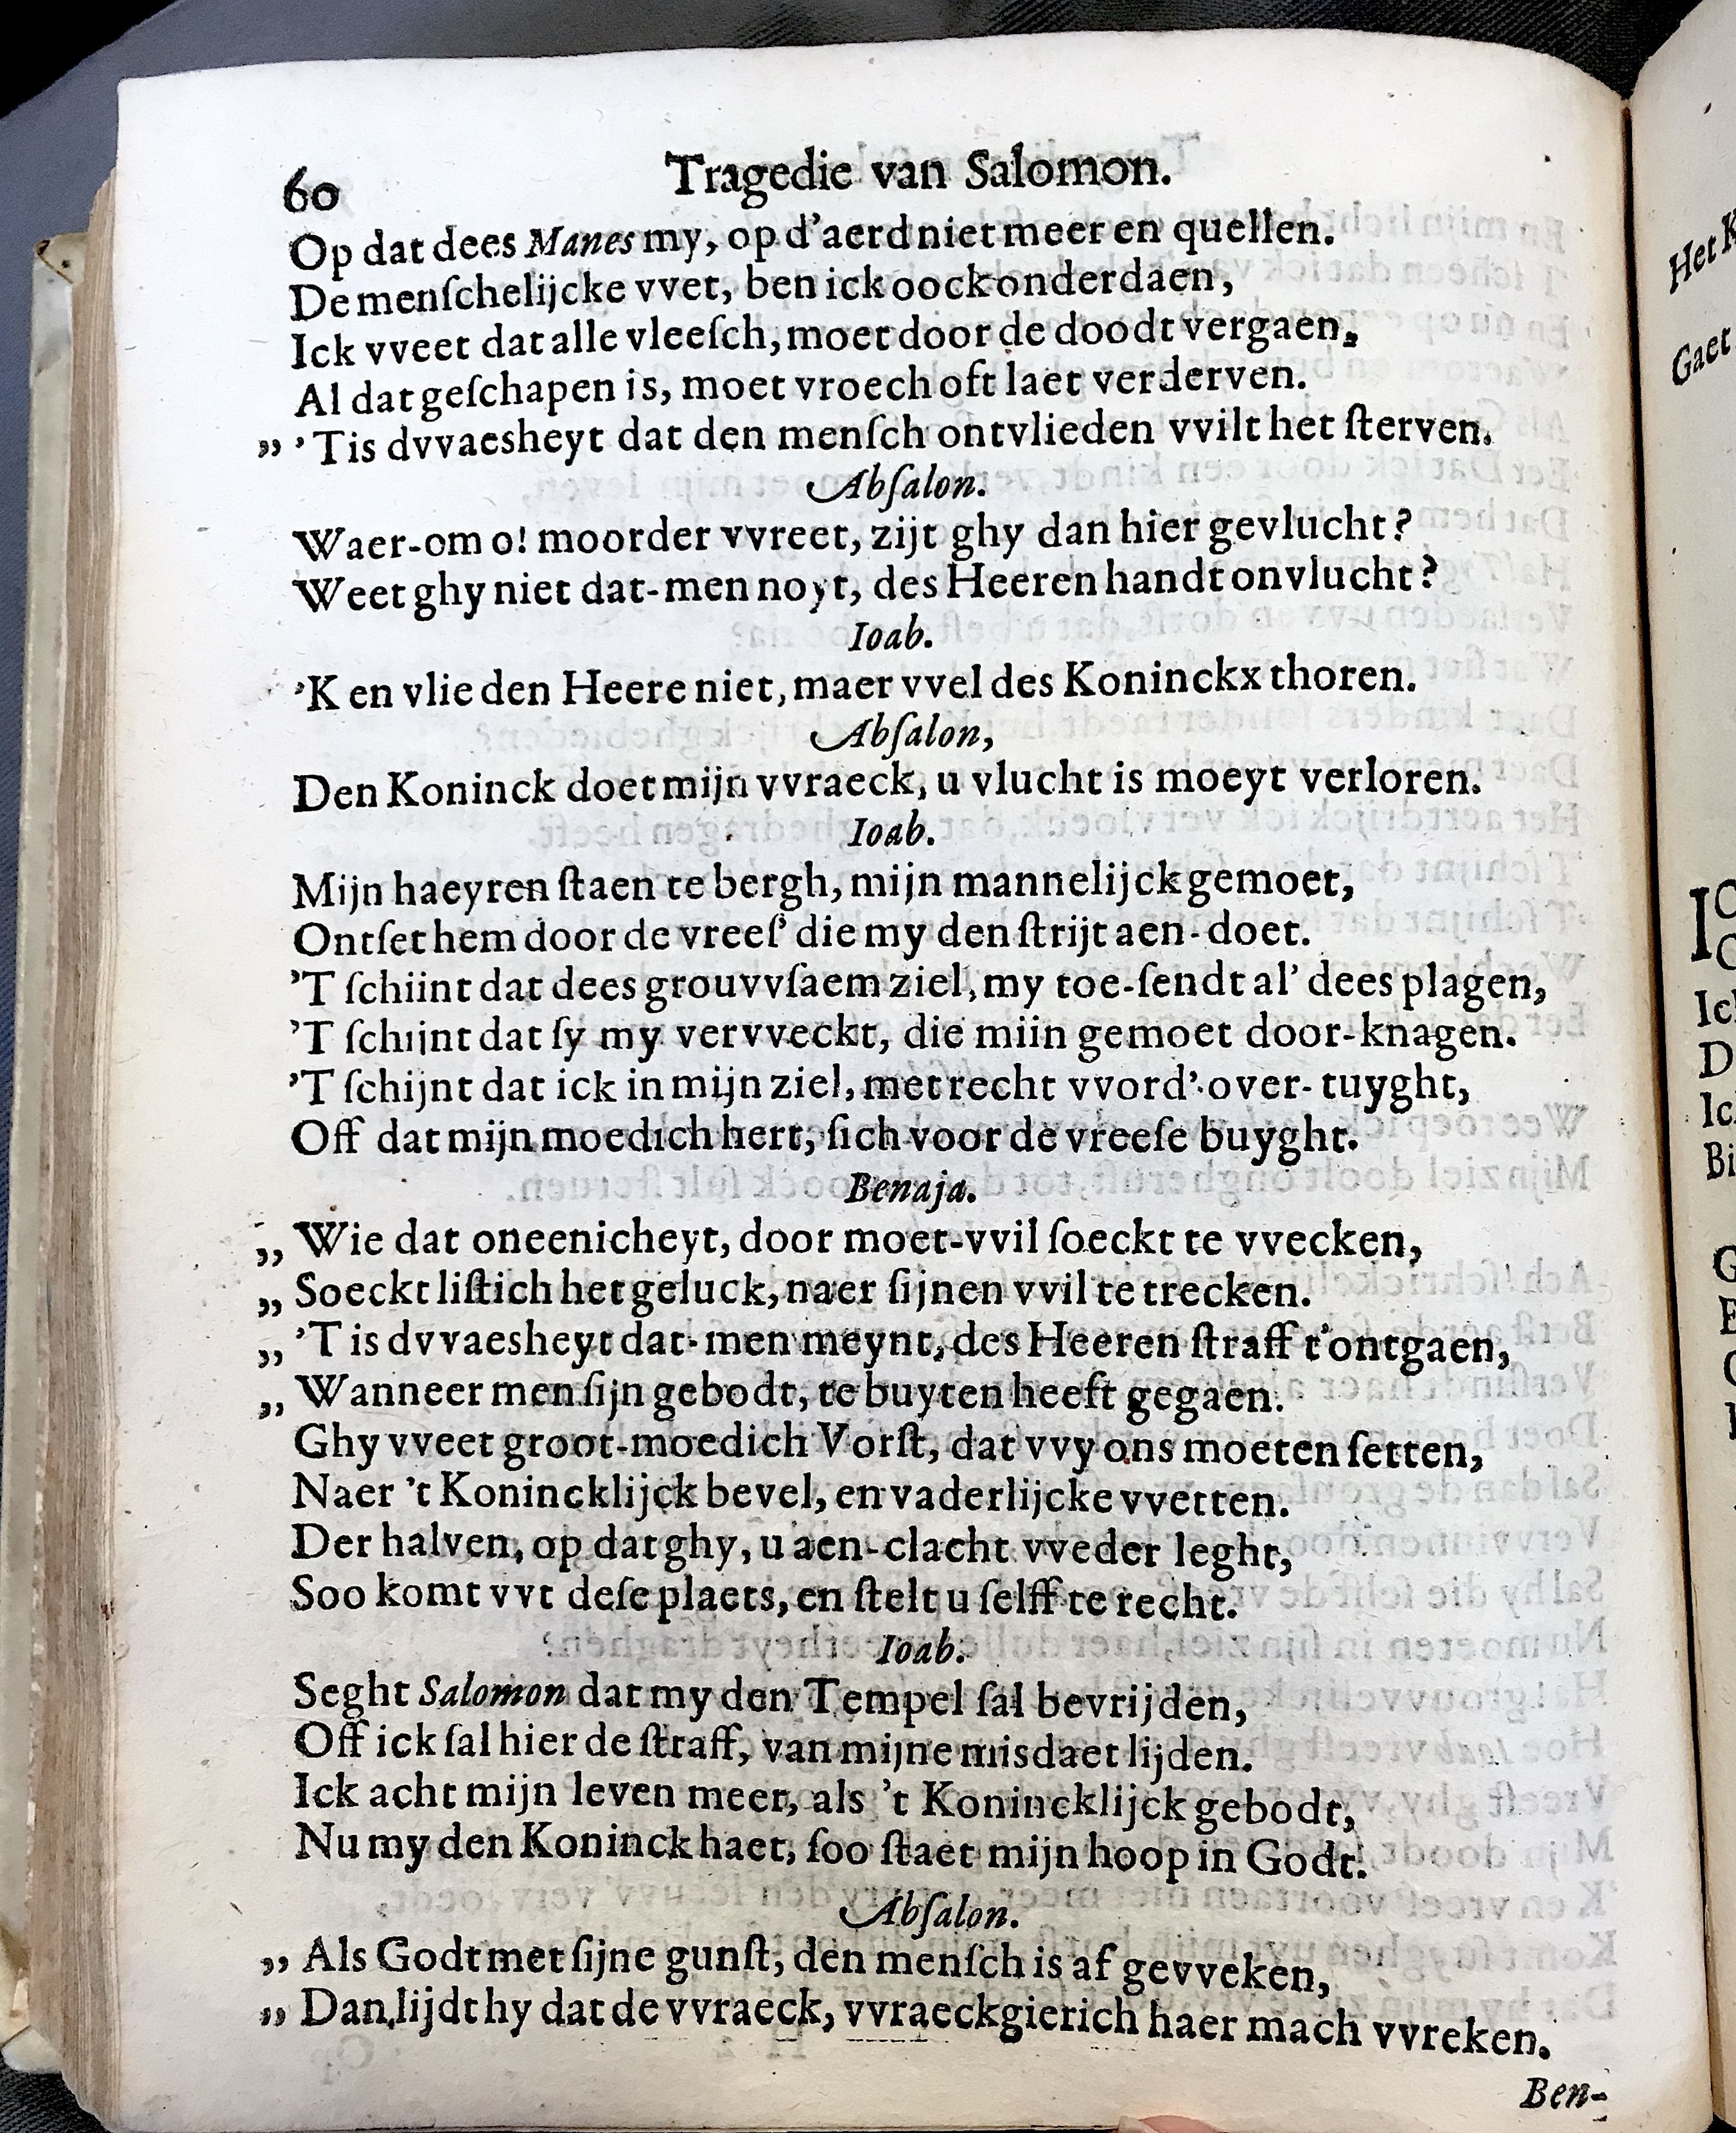 60 Tragedie van Salomon.
Op dat dees Manes my, op d'aerd niet meer en quellen.
De menſchelijcke vvet, ben ick oock onderdaen,
Ick vveet dat alle vleeſch, moet door de doodt vergaen,
Al dat geſchapen is, moet vroech oft laet verderven.
„ 'Tis dvvaesheyt dat den menſch ontvlieden vvilt het ſterven.
Abſalon.
Waer-om o! moorder vvreet, zijt ghy dan hier gevlucht?
Weet ghy niet dat-men noyt, des Heeren handt onvlucht?
Ioab.
'K en vlie den Heere niet, maer vvel des Koninckx thoren.
Abſalon,
Den Koninck doet mijn vvraeck, u vlucht is moeyt verloren.
Ioab.
Mijn haeyren ſtaen te bergh, mijn mannelijck gemoet,
Ontſet hem door de vreeſ' die my den ſtrijt aen-doet.
'T ſchiint dat dees grouvvſaem ziel, my toe-ſendt al' dees plagen,
'T ſchijnt dat ſy my vervveckt, die miin gemoet door-knagen.
'T ſchijnt dat ick in mijn ziel, met recht vvord' over-tuyght,
Off dat mijn moedich hert, ſich voor de vreeſe buyght.
Benaja.
„ Wie dat oneenicheyt, door moet-vvil ſoeckt te vvecken,
„ Soeckt liſtich het geluck, naer ſijnen vvil te trecken.
„ 'T is dvvaesheyt dat-men meynt, des Heeren ſtraff t'ontgaen,
„ Wanneer men ſijn gebodt, te buyten heeft gegaen.
Ghy vveet groot-moedich Vorſt, dat vvy ons moeten ſetten,
Naer 't Konincklijck bevel, en vaderlijcke vvetten.
Der halven, op dat ghy, u aen-clacht vveder leght,
Soo komt vvt deſe plaets, en ſtelt u ſelff te recht.
Ioab.
Seght Salomon dat my den Tempel ſal bevrijden,
Off ick ſal hier de ſtraff, van mijne misdaet lijden.
Ick acht mijn leven meer, als 't Konincklijck gebodt,
Nu my den Koninck haet, ſoo ſtaet mijn hoop in Godt.
Abſalon.
„ Als Godt met ſijne gunſt, den menſch is af gevveken,
„ Dan lijdt hy dat de vvraeck, vvraeckgierich haer mach vvreken.
Ben-